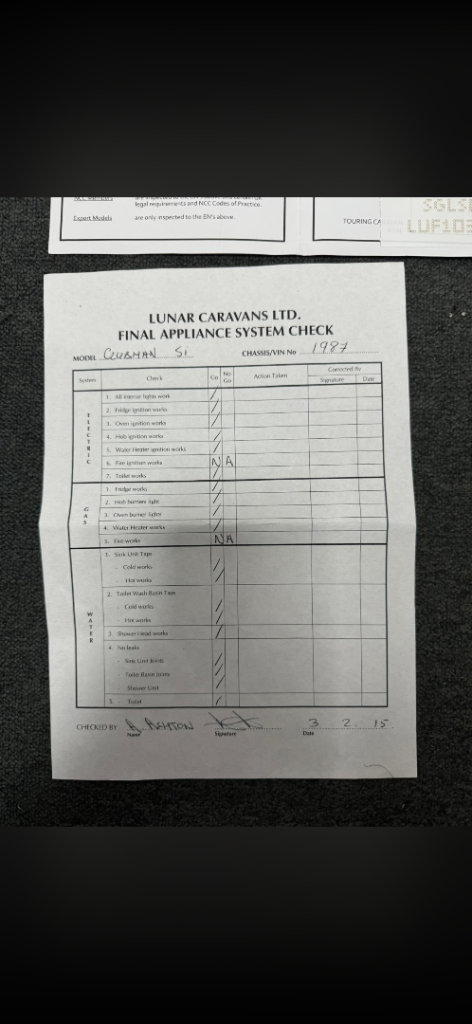 NCC Members
legal requirements and NCC Codes of Practice.
Expert Models are only inspected to the EN's above.
TOURING CA
SGLS
LUF103
LUNAR CARAVANS LTD.
FINAL APPLIANCE SYSTEM CHECK
MODEL CLUBMAN Si CHASSIS/VIN No 1987
System Check Go No Go Action Taken Corrected By
Signature Date
ELECTRIC
1. All interior lights work /
2. Fridge ignition works /
3. Oven ignition works /
4. Hob ignition works /
5. Water Heater ignition works /
6. Fire ignition works N A
7. Toilet works /
GAS
1. Fridge works /
2. Hob burners light /
3. Oven burner lights /
4. Water Heater works /
5. Fire works N A
WATER
1. Sink Unit Taps
- Cold works /
- Hot works /
2. Toilet Wash Basin Taps
- Cold works /
- Hot works /
3. Shower Head works /
4. No leaks
- Sink Unit Joints /
- Toilet Basin Joints /
- Shower Unit /
5. - Toilet /
CHECKED BY A. ASHTON 3 2. 15
Name Signature Date